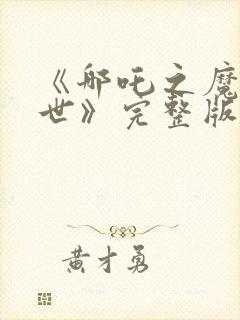 《哪吒之魔
世》完整版
黄才勇